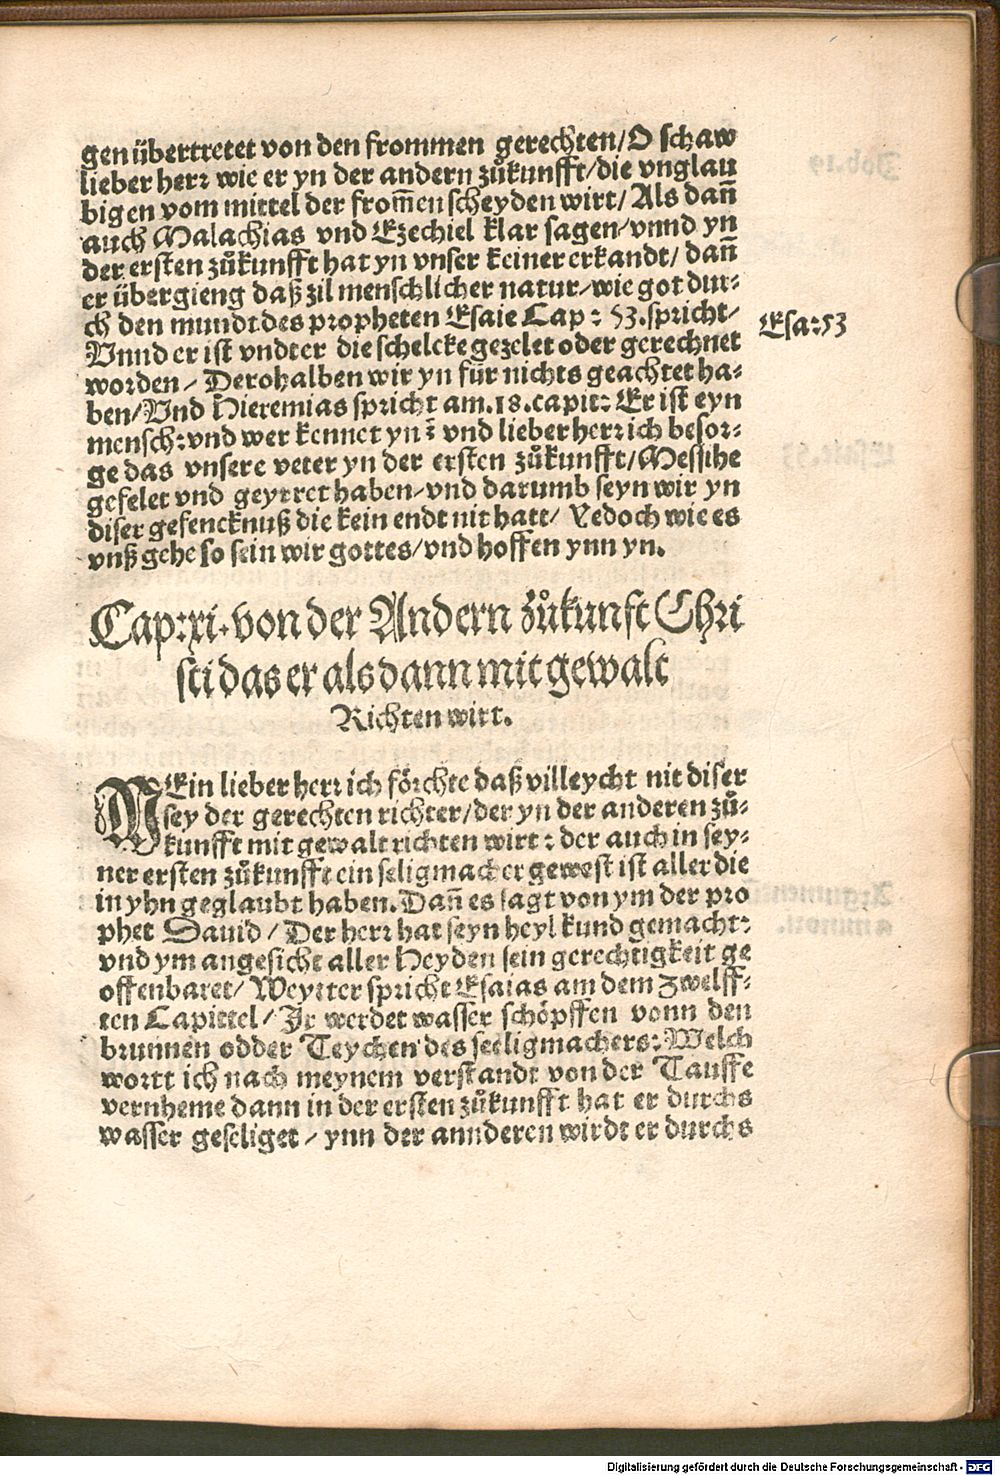 gen übertretet von den frommen gerechten/O schaw
lieber herꝛ wie er yn der andern zůkunfft/die vnglau
bigen vom mittel der from̃en scheyden wirt/Als dañ
auch Malachias vnd Ezechiel klar sagen/vnnd yn
der ersten zůkunfft hat yn vnser keiner erkandt/dañ
er übergieng daß zil menschlicher natur/wie got dur⸗
ch den mundt des propheten Esaie Cap: 53.spricht/
Vnnd er ist vndter die schelcke gezelet oder gerechnet
worden/Derohalben wir yn für nichts geachtet ha⸗
ben/Vnd Hieremias spricht am.18.capit: Er ist eyn
mensch:vnd wer kennet yn: vnd lieber herꝛ ich besor⸗
ge das vnsere veter yn der ersten zůkunfft/Messihe
gefelet vnd geyrret haben/vnd darumb seyn wir yn
diser gefencknuß die kein endt nit hatt/Yedoch wie es
vnß gehe so sein wir gottes/vnd hoffen ynn yn.
Esa:53
Cap:xi.von der Andern zůkunft Chri
sti das er als dann mit gewalt
Richten wirt.
MEin lieber herꝛ ich förchte daß villeycht nit diser
sey der gerechten richter/der yn der anderen zů⸗
kunfft mit gewalt richten wirt: der auch in sey⸗
ner ersten zůkunfft ein seligmacher gewest ist aller die
in yhn geglaubt haben. Dañ es sagt von ym der pro
phet Dauid/Der herꝛ hat seyn heyl kund gemacht:
vnd ym angesicht aller Heyden sein gerechtigkeit ge
offenbaret/Weytter spricht Esaias am dem Zwelff⸗
ten Capittel/Ir werdet wasser schöpffen vonn den
brunnen odder Teychen des seeligmachers:Welch
wortt ich nach meynem verstandt von der Tauffe
vernheme dann in der ersten zůkunfft hat er durchs
wasser geseliget/ynn der annderen wirdt er durchs
Digitalisierung gefördert durch die Deutsche Forschungsgemeinschaft - DFG